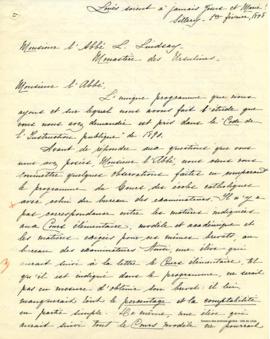 Loués soient à jamais Jésus et Marie!
Sillery, 1er février, 1898
Monsieur l'Abbé L. Lindsay,
Monastère des Ursulines
Monsieur l'Abbé,
L'unique programme que nous
ayons et sur lequel nous avons fait l'étude que
vous nous avez demandée est pris dans le Code de
l'Instruction publique de 1890.
Avant de répondre aux questions que vous
nous avez posées, Monsieur l'Abbé, nous allons vous
soumettre quelques observations faites en comparant
le programme du Cours des écoles catholiques
avec celui du bureau des examinateurs. Il n'y a
pas correspondance entre les matières indiquées
aux Cours élémentaire, modèle et académique et
les matières exigées pour les mêmes brevets au
bureau des examinateurs. Ainsi une élève qui
aurait suivi à la lettre le Cours élémentaire, tel
qu'il est indiqué dans le programme, ne serait
pas en mesure d'obtenir son brevet: il lui
manquerait tout le percentage et la comptabilité
en partie simple. De même, une élève qui
aurait suivi tout le Cours modèle ne pourrait